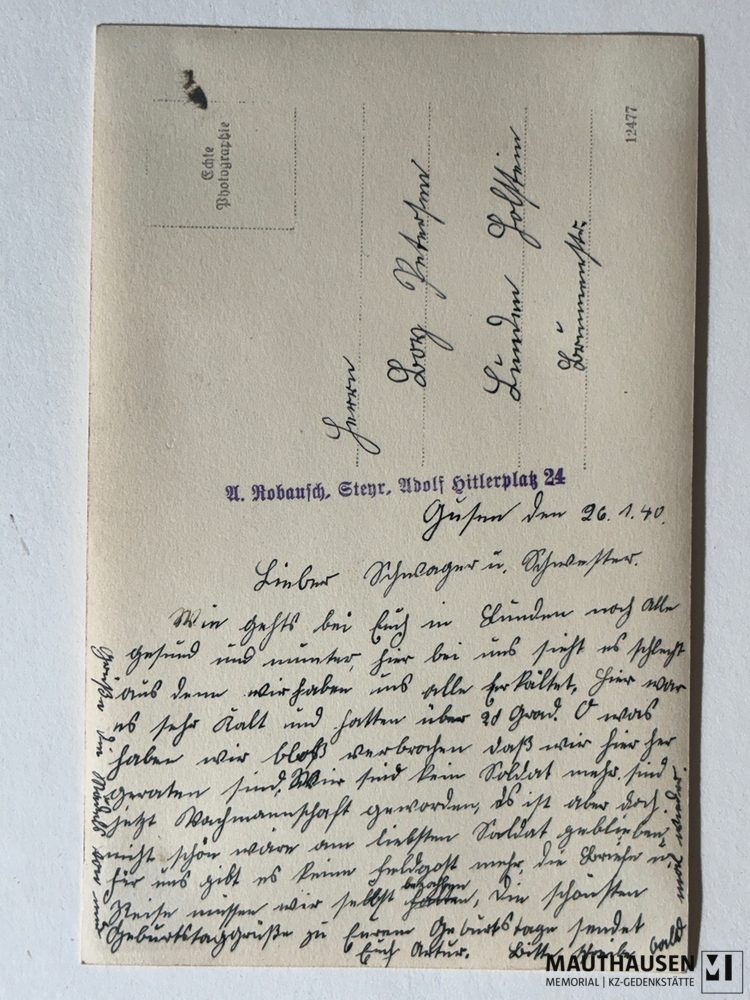 Echte
Photographie
12477
Herrn
Boy Petersen
Lunden Holstein
Brunnenstr.
A. Robausch, Steyr, Adolf Hitlerplatz 24
Gusen den 26.1.40.
Lieber Schwager u. Schwester.
Wie gehts bei Euch in Lunden noch alle
gesund und munter, hier bei uns sieht es schlecht
aus denn wir haben uns alle Erkältet, hier war
es sehr Kalt und hatten über 20 Grad. O was
haben wir bloß verbrochen daß wir hier her
geraten sind. Wir sind kein Soldat mehr sind
jetzt Wachmannschaft geworden, es ist aber doch
nicht schön wäre am liebsten Soldat geblieben,
für uns gibt es keine Feldpost mehr, die Briefe u.
Reise müssen wir selbst bezahlen, die schönsten
Geburtstaggrüße zu Eurem Geburtstage sendet
Euch Artur. Bitte
bald mal wieder.
Grüße von mir
MAUTHAUSEN
MEMORIAL | KZ-GEDENKSTÄTTE